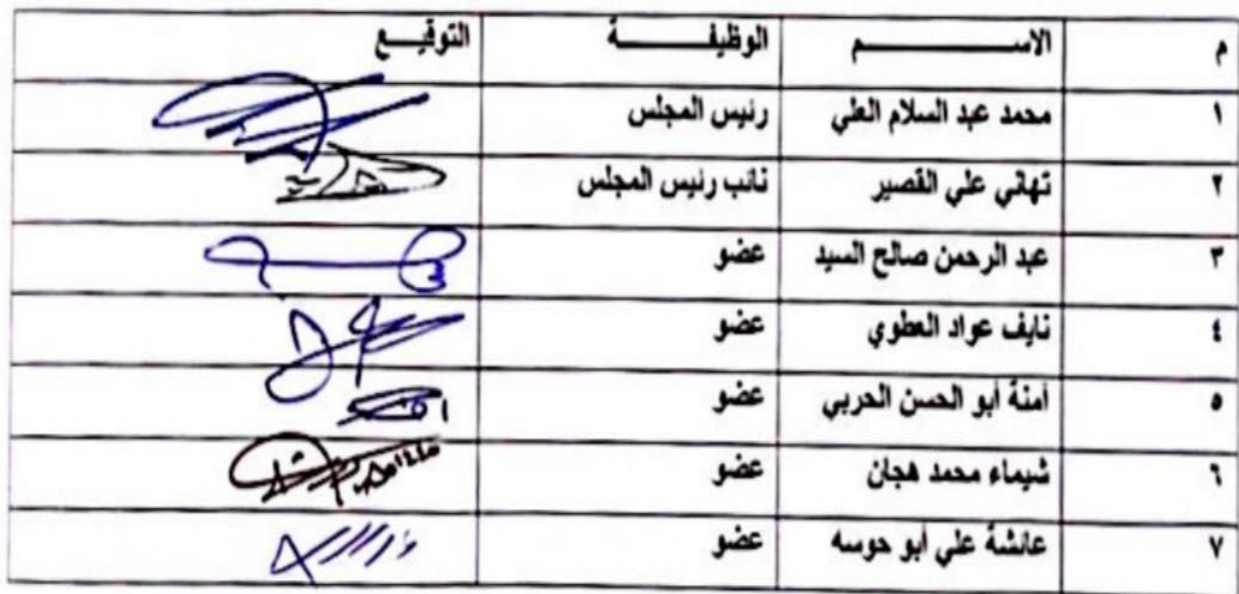 م الاســـــــــــم الوظيفـــــــــة التوقيـــع
١ محمد عبد السلام العلي رئيس المجلس
٢ تهاني علي القصير نائب رئيس المجلس
٣ عبد الرحمن صالح السيد عضو
٤ نايف عواد العطوي عضو
٥ آمنة أبو الحسن الحربي عضو
٦ شيماء محمد هجان عضو
٧ عائشة علي أبو حوسه عضو